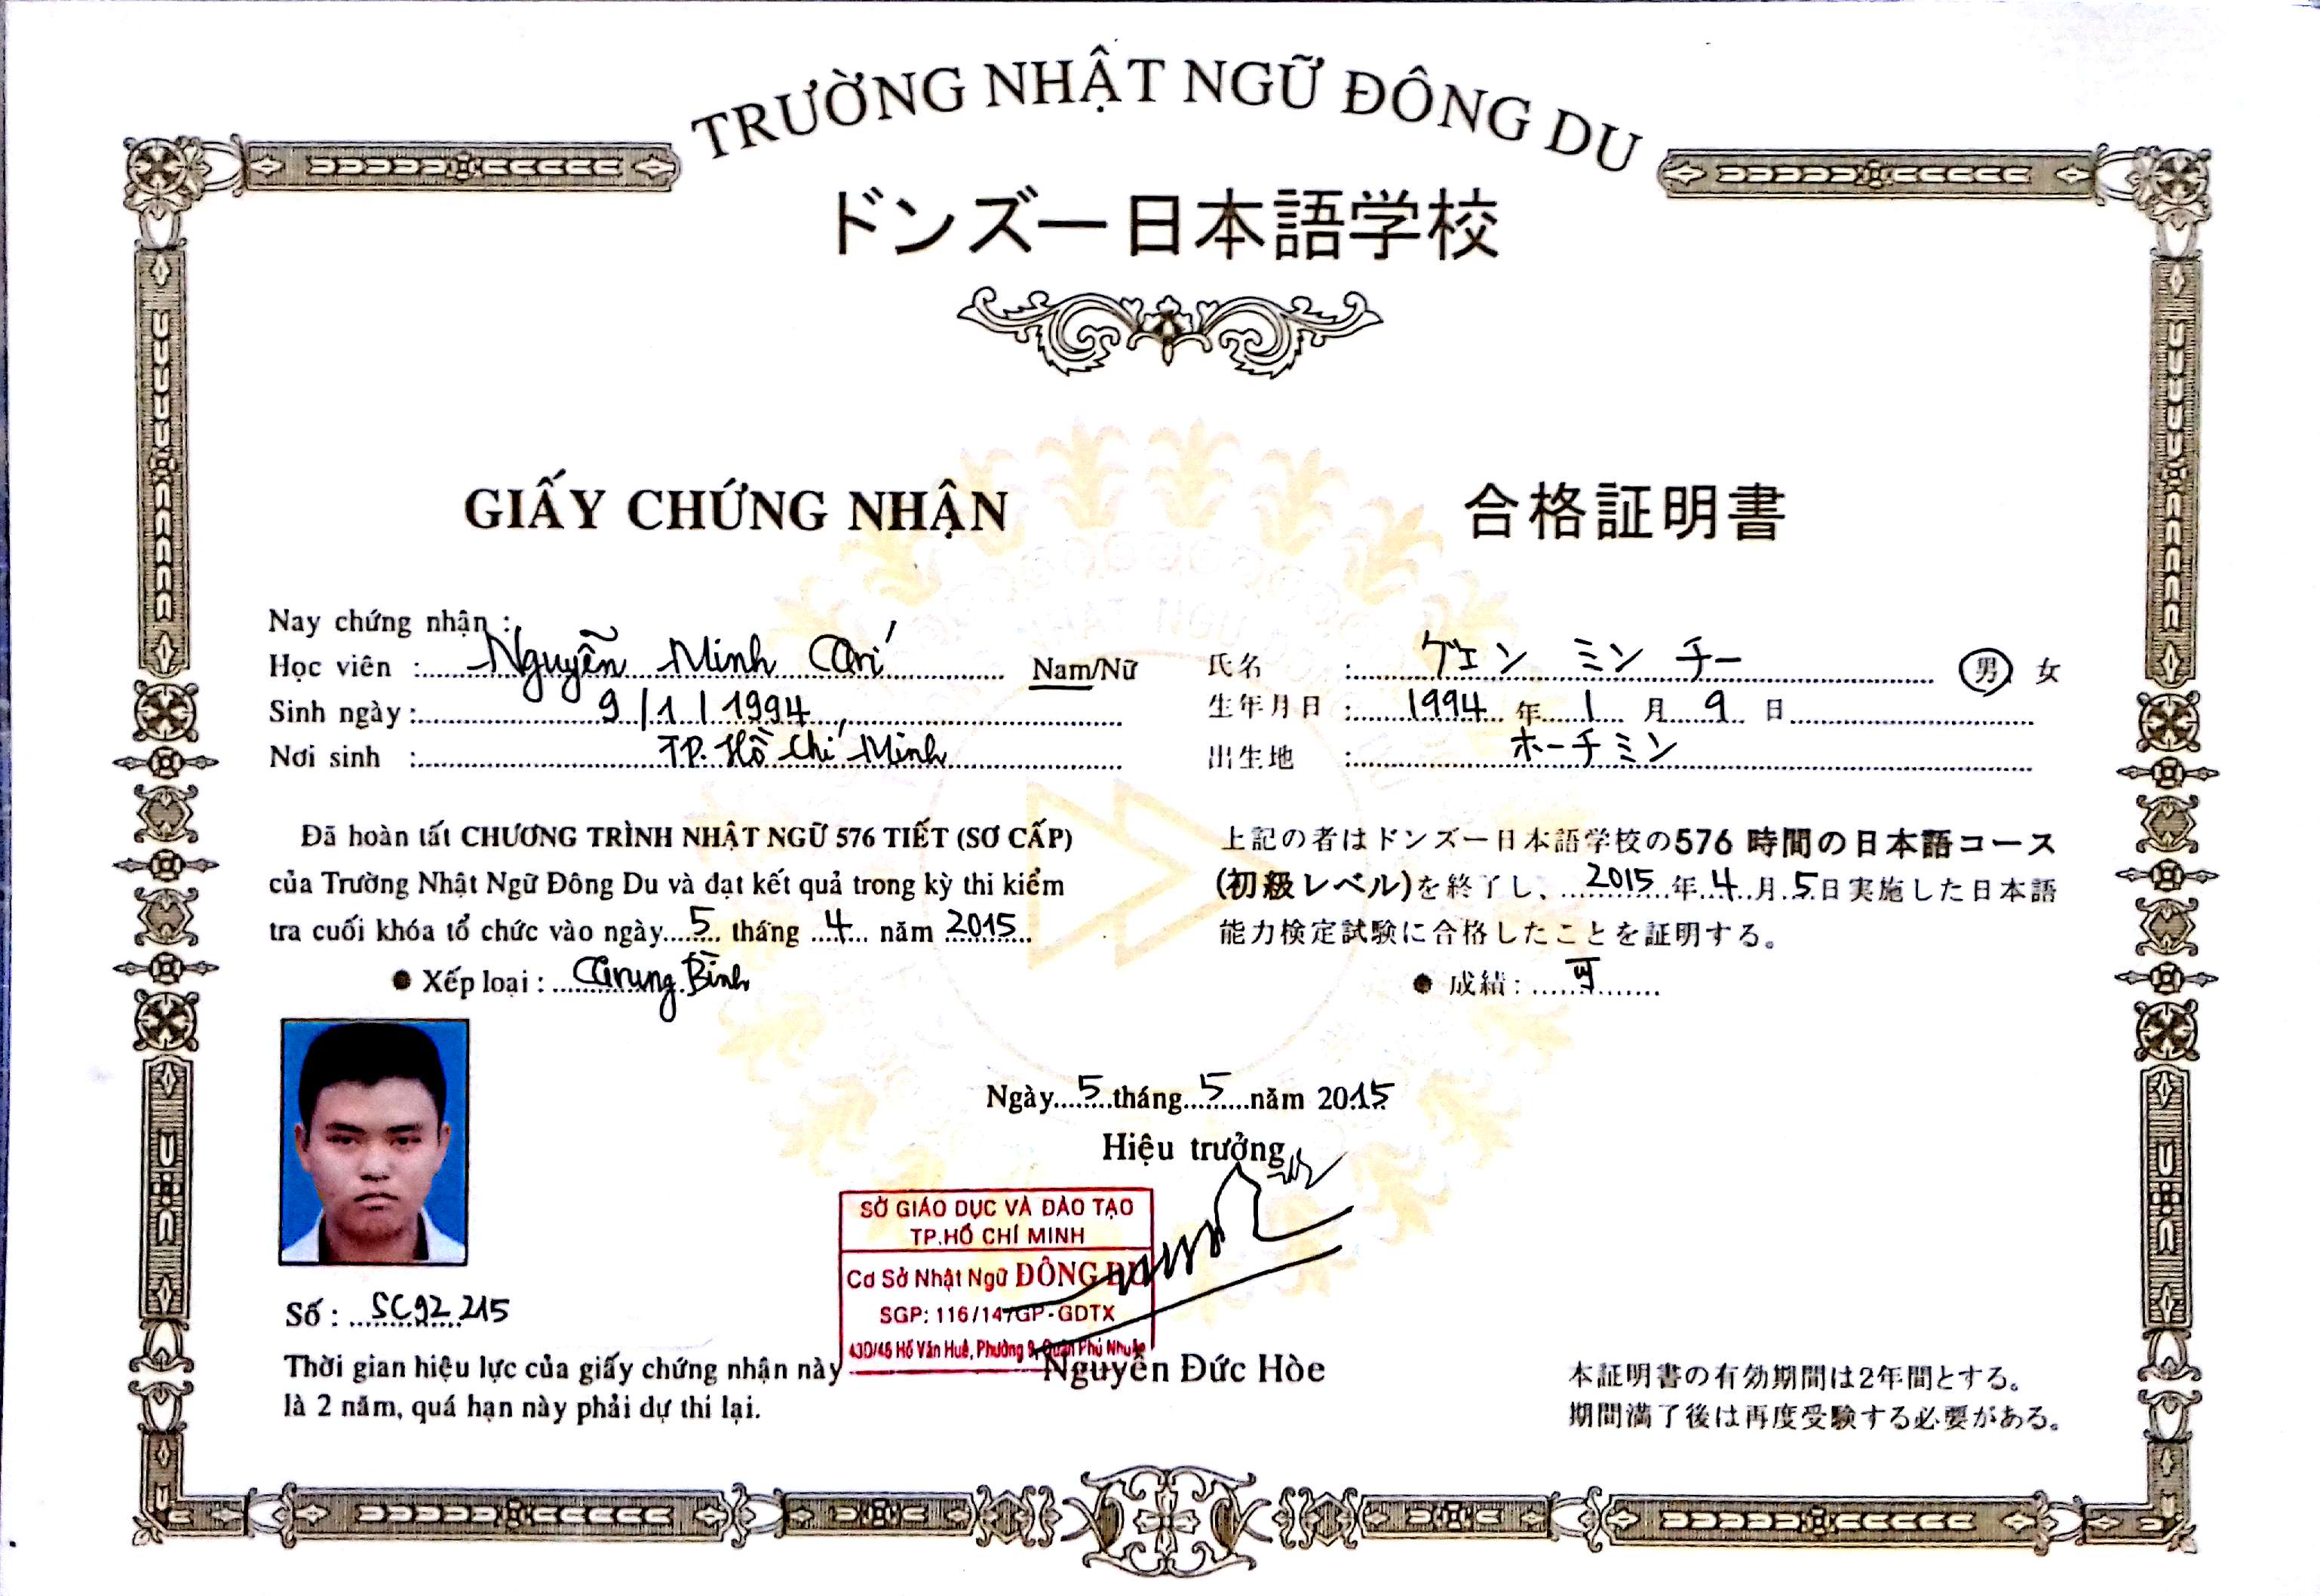 TRƯỜNG NHẬT NGỮ ĐÔNG DU
ドンズー日本語学校
GIẤY CHỨNG NHẬN
合格証明書
Nay chứng nhận :
Học viên : Nguyễn Minh Chí Nam/Nữ
Sinh ngày : 9/1/1994
Nơi sinh : TP. Hồ Chí Minh
氏名 : グエン ミン チー 男 女
生年月日 : 1994 年 1 月 9 日
出生地 : ホーチミン
Đã hoàn tất CHƯƠNG TRÌNH NHẬT NGỮ 576 TIẾT (SƠ CẤP)
của Trường Nhật Ngữ Đông Du và đạt kết quả trong kỳ thi kiểm
tra cuối khóa tổ chức vào ngày 5 tháng 4 năm 2015
● Xếp loại : Trung Bình
上記の者はドンズー日本語学校の576 時間の日本語コース
(初級レベル)を終了し、2015年4月5日実施した日本語
能力検定試験に合格したことを証明する。
● 成績 : 可
Ngày 5 tháng 5 năm 2015
Hiệu trưởng
SỞ GIÁO DỤC VÀ ĐÀO TẠO
TP.HỒ CHÍ MINH
Cơ Sở Nhật Ngữ ĐÔNG DU
SGP: 116/147GP-GDTX
430/46 Hồ Văn Huê, Phường 9, Quận Phú Nhuận
Nguyễn Đức Hòe
Số : SC92 215
Thời gian hiệu lực của giấy chứng nhận này
là 2 năm, quá hạn này phải dự thi lại.
本証明書の有効期間は2年間とする。
期間満了後は再度受験する必要がある。